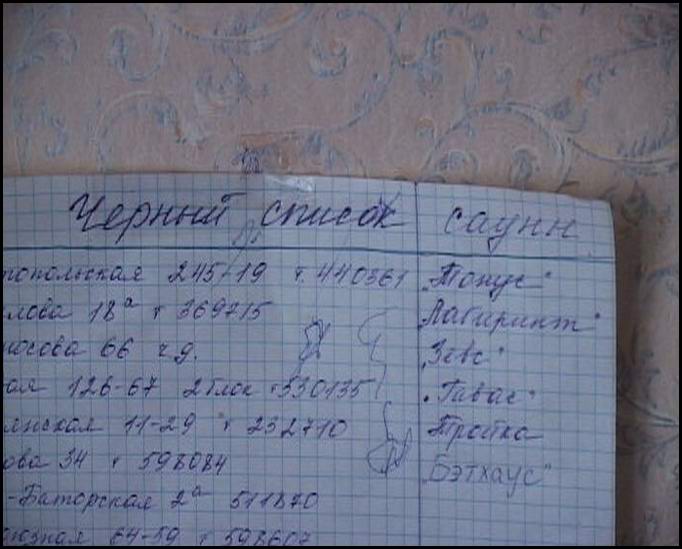 Черный список саунн
топольская 245-19 т. 440361 "Тонус"
лова 18а т 369715 Лабиринт"
носова 66 ч.д. "Зевс"
ая 126-67 2 блок т 330135 "Гавас"
янская 11-29 т 232710 Тройка
ова 34 т 598084 "Бэтхаус"
-Баторская 2а 511870
юзная 64-59 т 598607